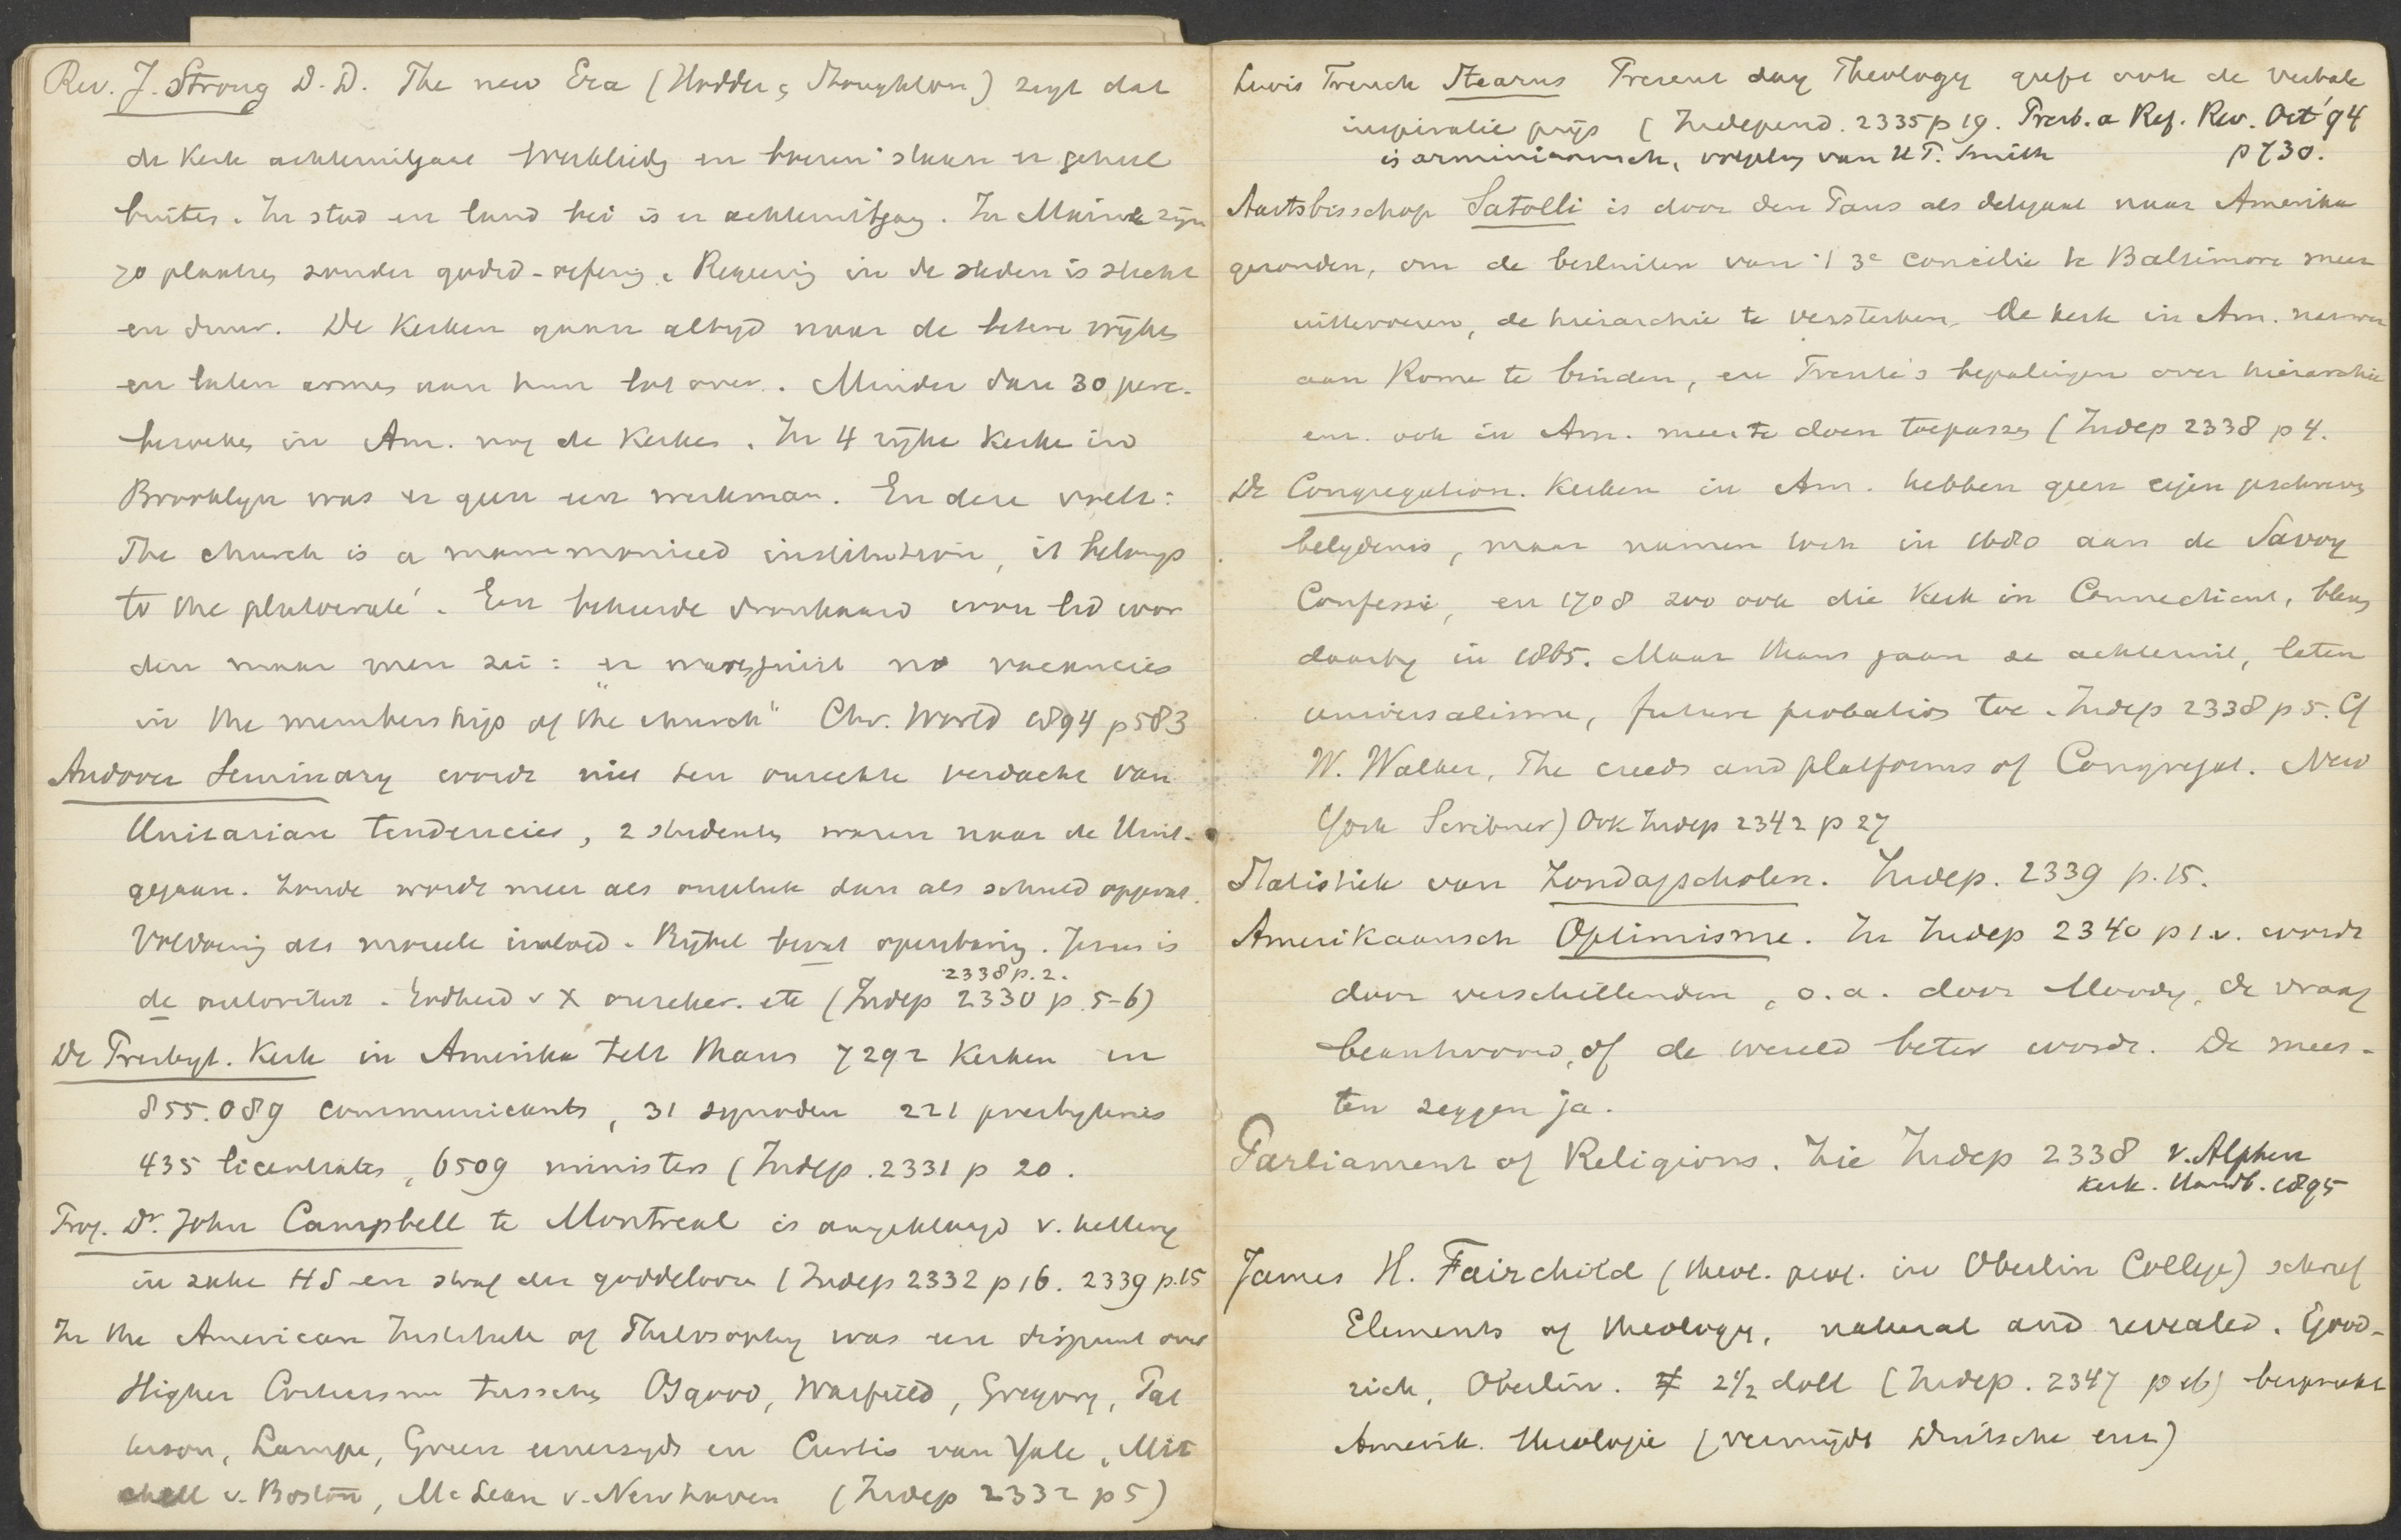 Rev. J. Strong D.D. The new Era (Hodder & Stoughton) zegt dat
de kerk achteruitgaat werklieden en boeren staan er geheel
buiten. In stad en land bei is er achteruitgang. In Maine zijn
70 plaatsen zonder godsd-oefening. Regeering in de steden is slecht
en duur. De kerken gaan altijd naar de betere wijken
en laten armen aan hun lot over. Minder dan 30 perc.
bezoeken in Am. nog de kerken. In 4 rijke kerken in
Brooklyn was er geen een werkman. En deze voelt:
The church is a mere monied institution, it belongs
to the plutocrate'. Een bekeerde dronkaard wou lid wor
den maar men zei: er waren juist no vacancies
in the membership of the church" Chr. World 1894 p 583
Andover Seminary wordt niet ten onrechte verdacht van
Unitarian tendencies, 2 studenten waren naar de Unit.
gegaan. Zonde wordt meer als ongeluk dan als schuld opgevat.
Voldoening als moreele invloed. Bijbel bevat openbaring. Jezus is
2338 p. 2.
de autoriteit. Godheid v X onzeker. etc (Indep 2330 p. 5-6)
De Presbyt. Kerk in Amerika telt thans 7292 kerken en
855.089 communicants, 31 synoden 221 presbyteries
435 licentiates, 6509 ministers (Indep. 2331 p 20.
Prof. Dr. John Campbell te Montreal is aangeklaagd v. ketterij
in zake HS en straf der goddeloozen (Indep 2332 p 16. 2339 p. 15
In the American Institute of Philosophy was een dispuut over
Higher Criticism tusschen Osgood, Warfield, Gregory, Pat
terson, Lampe, Green eenerzijds en Curtis van Yale, Mit
chell v. Boston, McLean v. Newhaven (Indep 2332 p 5)
Lewis French Stearns Present day Theology geeft ook de verbale
inspiratie prijs (Independ. 2335 p 19. Presb. a Ref. Rev. Oct '94
is arminiaansch, volgeling van H.T. Smith p 730.
Aartsbisschop Satolli is door den Paus als delegaat naar Amerika
gezonden, om de besluiten van 't 3e concilie te Baltimore meer
uittevoeren, de hierarchie te versterken, de kerk in Am. nauwer
aan Rome te binden, en Trente's bepalingen over hierarchie
enz. ook in Am. meer te doen toepassen (Indep 2338 p 4.
De Congregation. kerken in Am. hebben geen eigen geschreven
belijdenis, maar namen toch in 1680 aan de Savoy
Confessie, en 1708 zoo ook die kerk in Connecticut, bleven
daarbij in 1865. Maar thans gaan ze achteruit, laten
universalisme, future probation toe. Indep 2338 p 5. Cf
W. Walker, The creeds and platforms of Congregat. New
York Scribner) Ook Indep 2342 p 27
Statistiek van Zondagscholen. Indep. 2339 p. 15.
Amerikaansch Optimisme. In Indep 2340 p 1 v. wordt
door verschillenden, o.a. door Moody, de vraag
beantwoord, of de wereld beter wordt. De mees-
ten zeggen ja.
Parliament of Religions. Zie Indep 2338 v. Alphen
Kerk. Handb. 1895
James H. Fairchild (theol. prof. in Oberlin College) schreef
Elements of theology, natural and revealed. Good-
rich, Oberlin. 2 1/2 doll (Indep. 2347 p 16) bespreekt
Amerik. theologie (vermijdt Duitsche enz)